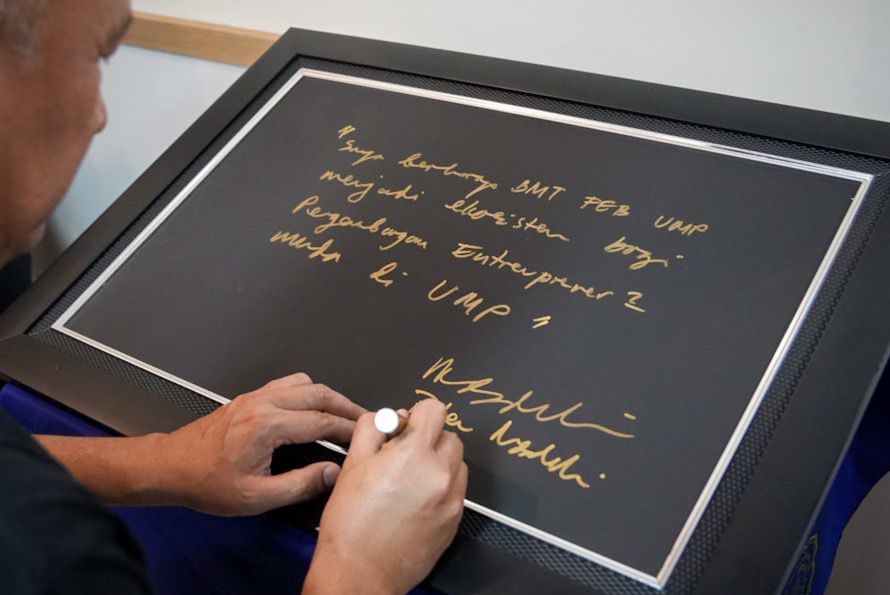 "Saya berharap BMT FEB UMP
menjadi ekosistem bagi
Pengembangan Entreprener 2
muda di UMP"